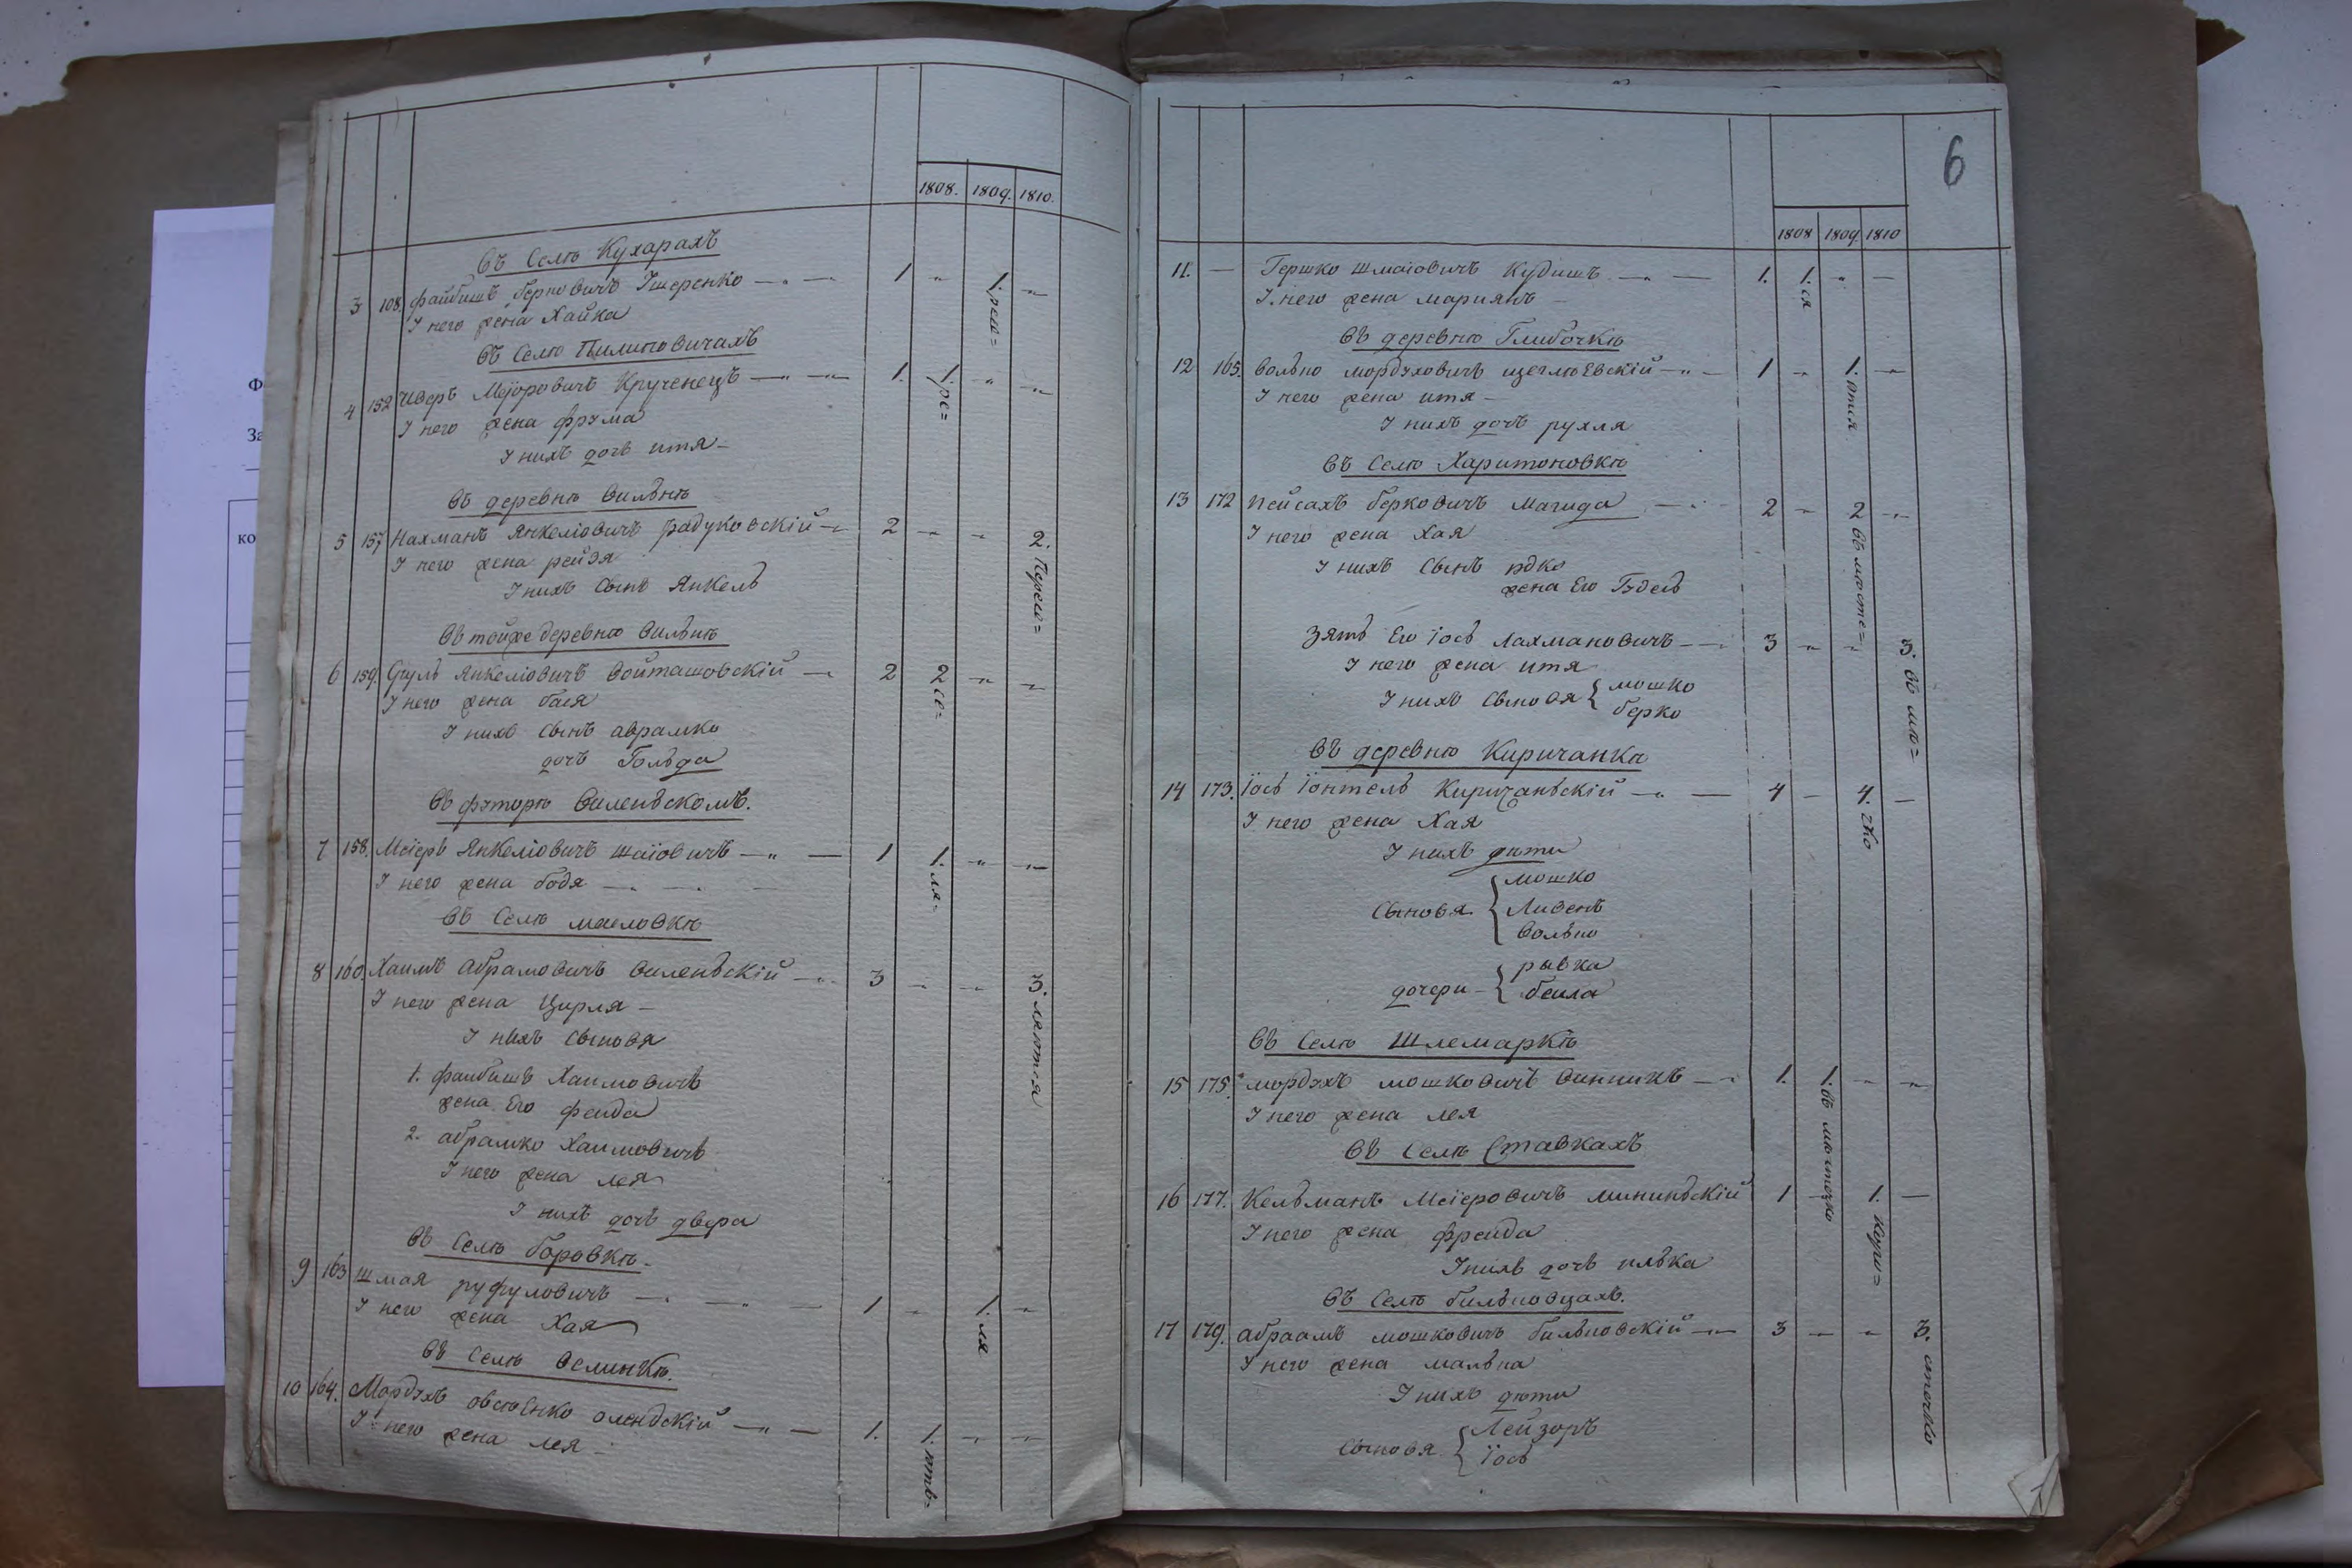 1808. 1809. 1810.
Въ Селѣ Кухарахъ
3 108. файбишъ берковичъ Ішеренко 1. 1. рем=
У него жена Хайка
Въ Селѣ Пилиповичахъ
4 152 Меіоровичъ Крученецъ 1. 1. ре=
У него жена фрума
У нихъ дочь итя
Въ деревнѣ Вильнѣ
5 157 Нахманъ Янкеліовичъ радуковскій 2 2. Пересе=
У него жена рейзя
У нихъ Сынъ Янкель
Въ тойже деревнѣ Вильнѣ
6 159. Сруль Янкеліовичъ Войташовскій 2 2 се=
У него жена бася
У нихъ Сынъ аврамко
дочь Гольда
Въ футорѣ Виленьскомъ.
7 158. Меіеръ Янкеліовичъ шаіовичъ 1 1. ля=
У него жена бодя
Въ Селѣ маемовкѣ
8 160. Хаимъ абрамовичъ Виленьскій 3 3. ляются
У него жена Цирля
У нихъ Сыновя
1. файбишъ Хаимовичъ
жена Его фейда
2. абрамко Хаимовичъ
У него жена лея
У нихъ дочь двера
Въ Селѣ боровкѣ.
9 163 шмая руфуловичъ 1 1. ля
У него жена Хая
Въ Селѣ
10 164. Мордухъ овсѣенко 1. 1. ютъ=
У него жена лея
6
1808 1809. 1810
11. Гершко шмаіовичъ Кудишъ 1. 1. ся
У него жена марияпъ
Въ деревнѣ Глибочкѣ
12 165. Вольпо мордуховичъ щеглѣевскій 1 1. ются
У него жена итя
У нихъ дочь рухля
Въ Селѣ Харитоновкѣ
13 172 пейсахъ берковичъ магида 2 2 въ мѣсте=
У него жена Хая
У нихъ Сынъ юдко
жена Его Гудесь
Зять Его іось Лахмановичъ 3 3. въ мѣ=
У него жена итя
У нихъ Сыновя мошко
берко
Въ деревнѣ Киричанкѣ
14 173. іось іонтель Киричаньскій 4 4. чко
У него жена Хая
У нихъ дѣти
Сыновя мошко
Ливенъ
Вольпо
дочери рывка
беила
Въ Селѣ Шлемаркѣ
15 175. мордухъ мошковичъ Винникъ 1. 1. въ мѣстечко
У него жена лея
Въ Селѣ Ставкахъ
16 177. Кельманъ Меіеровичъ мининьскій 1 1.
У него жена фрейда
У нихъ дочь
Въ Селѣ бильповцахъ.
17 179. абраамъ мошковичъ бильповскій 3 3. стечко
У него жена мальпа
У нихъ дѣти
Сыновя Лейзоръ
іось